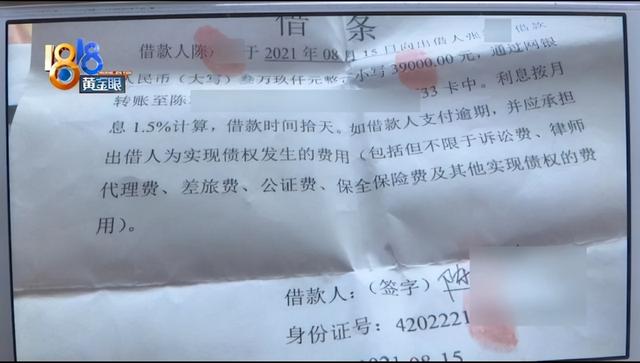 借条
1818
黄金眼
借款人陈 于2021年08月15日向出借人张 借款
人民币(大写)叁万玖仟元整,小写39000.00元,通过网银
转账至陈 33卡中。利息按月
息1.5%计算,借款时间拾天。如借款人支付逾期,并应承担
出借人为实现债权发生的费用(包括但不限于诉讼费、律师
代理费、差旅费、公证费、保全保险费及其他实现债权的费
用)。
借款人:(签字)陈
身份证号:4202221
2021-08-15